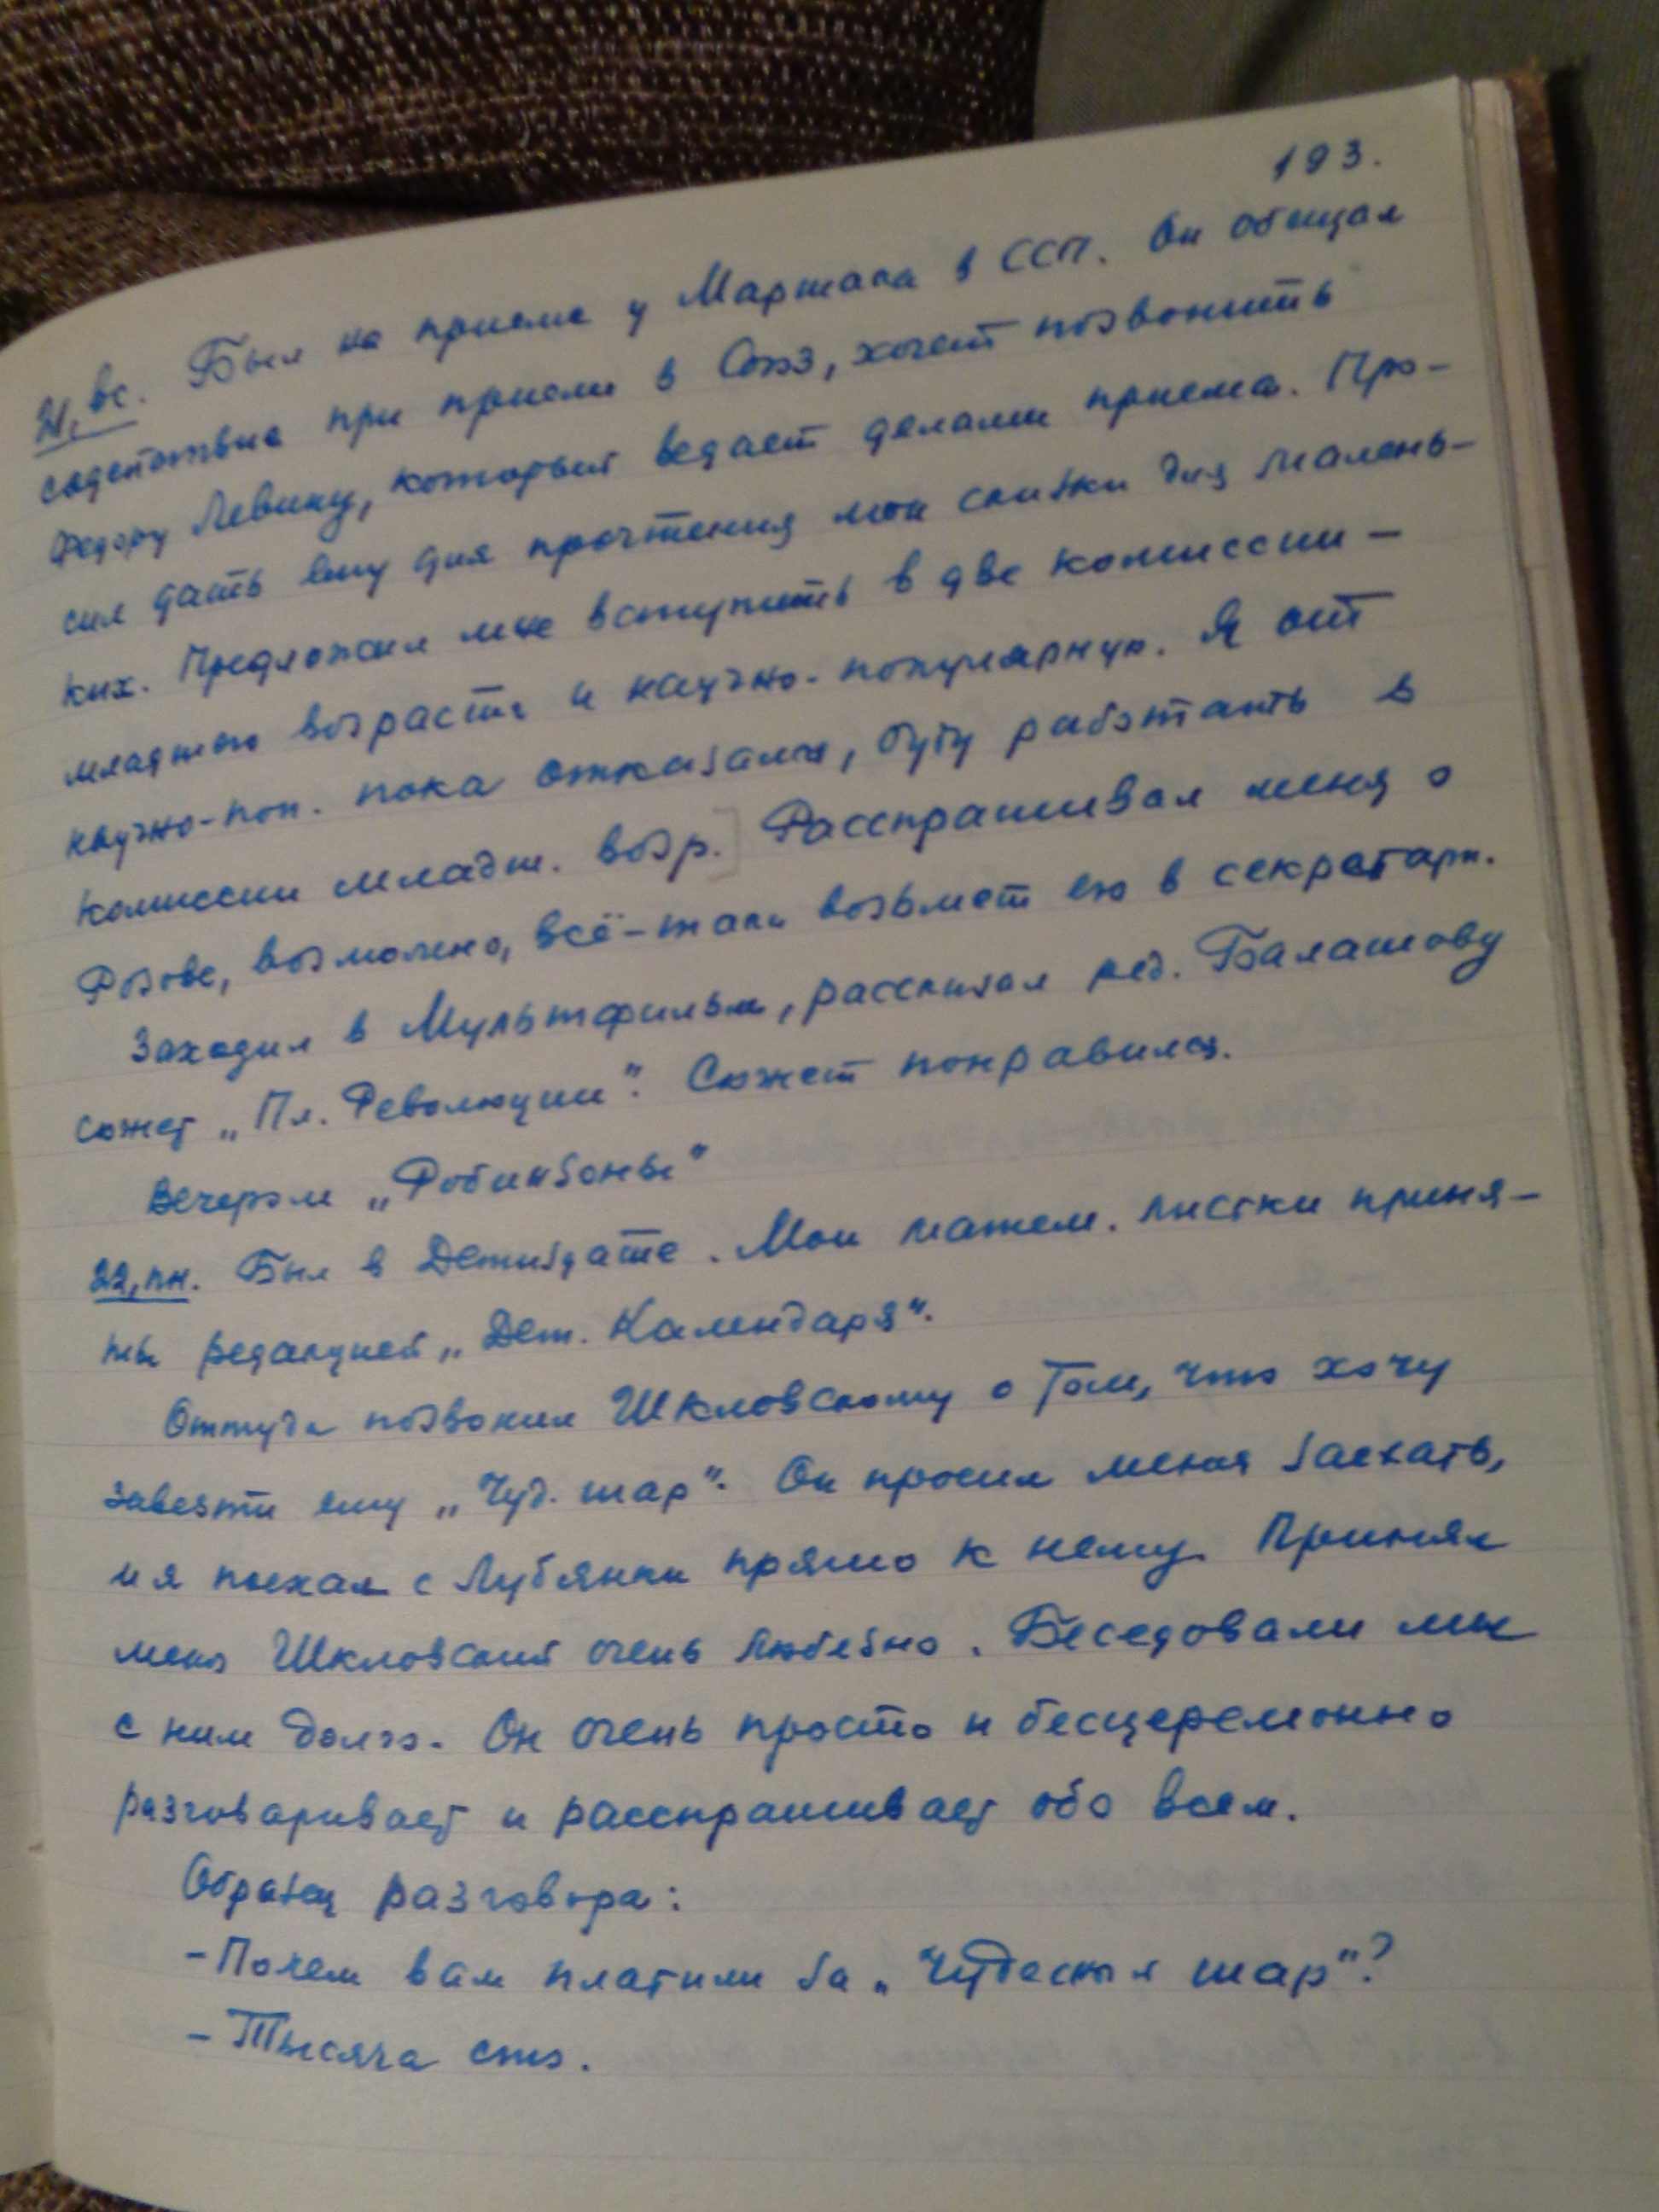 193.
21, вс. Был на приеме у Маршака в ССП. Он обещал
содействие при приеме в Союз, хочет позвонить
Федору Левину, который ведает делами приема. Про-
сил дать ему для прочтения мои сказки для малень-
ких. Предложил мне вступить в две комиссии –
младшего возраста и научно-популярную. Я от
научно-поп. пока отказался, буду работать в
комиссии младш. возр.] Расспрашивал меня о
Розове, возможно, всё-таки возьмет его в секретари.
Заходил в Мультфильм, рассказал ред. Балашову
сюжет „Пл. Революции". Сюжет понравился.
Вечером „Робинзоны"
22, пн. Был в Детиздате. Мои матем. листки приня-
ты редакцией „Дет. Календаря".
Оттуда позвонил Шкловскому о том, что хочу
завезти ему „Чуд. шар". Он просил меня заехать,
и я поехал с Лубянки прямо к нему. Принял
меня Шкловский очень любезно. Беседовали мы
с ним долго. Он очень просто и бесцеремонно
разговаривает и расспрашивает обо всем.
Образец разговора:
– Почем вам платили за „Чудесный шар"?
– Тысяча сто.